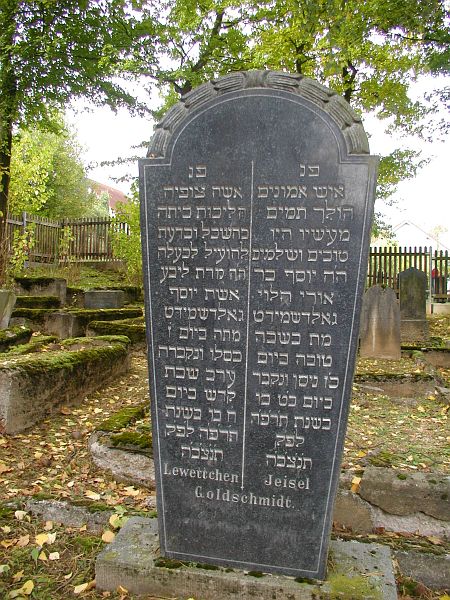 פנ
איש אמונים
הולך תמים
מעשיו היו
טובים ושלמים
הה יוסף בר
אורי הלוי
גאלדשמידט
מת בשבה
טובה ביום
כז ניסן ונקבר
ביום כט בו
בשנת תרפה
לפק
תנצבה
Jeisel
פנ
אשה צופיה
הליכות ביתה
בהשכל ובדעת
הועילה לבעלה
אשת יוסף
גאלדשמידט
מתה ביום ז
כסלו ונקברת
ערב שבת
קדש ביום
ח בו בשנת
תרפה לפק
תנצבה
Lewettchen
Goldschmidt.